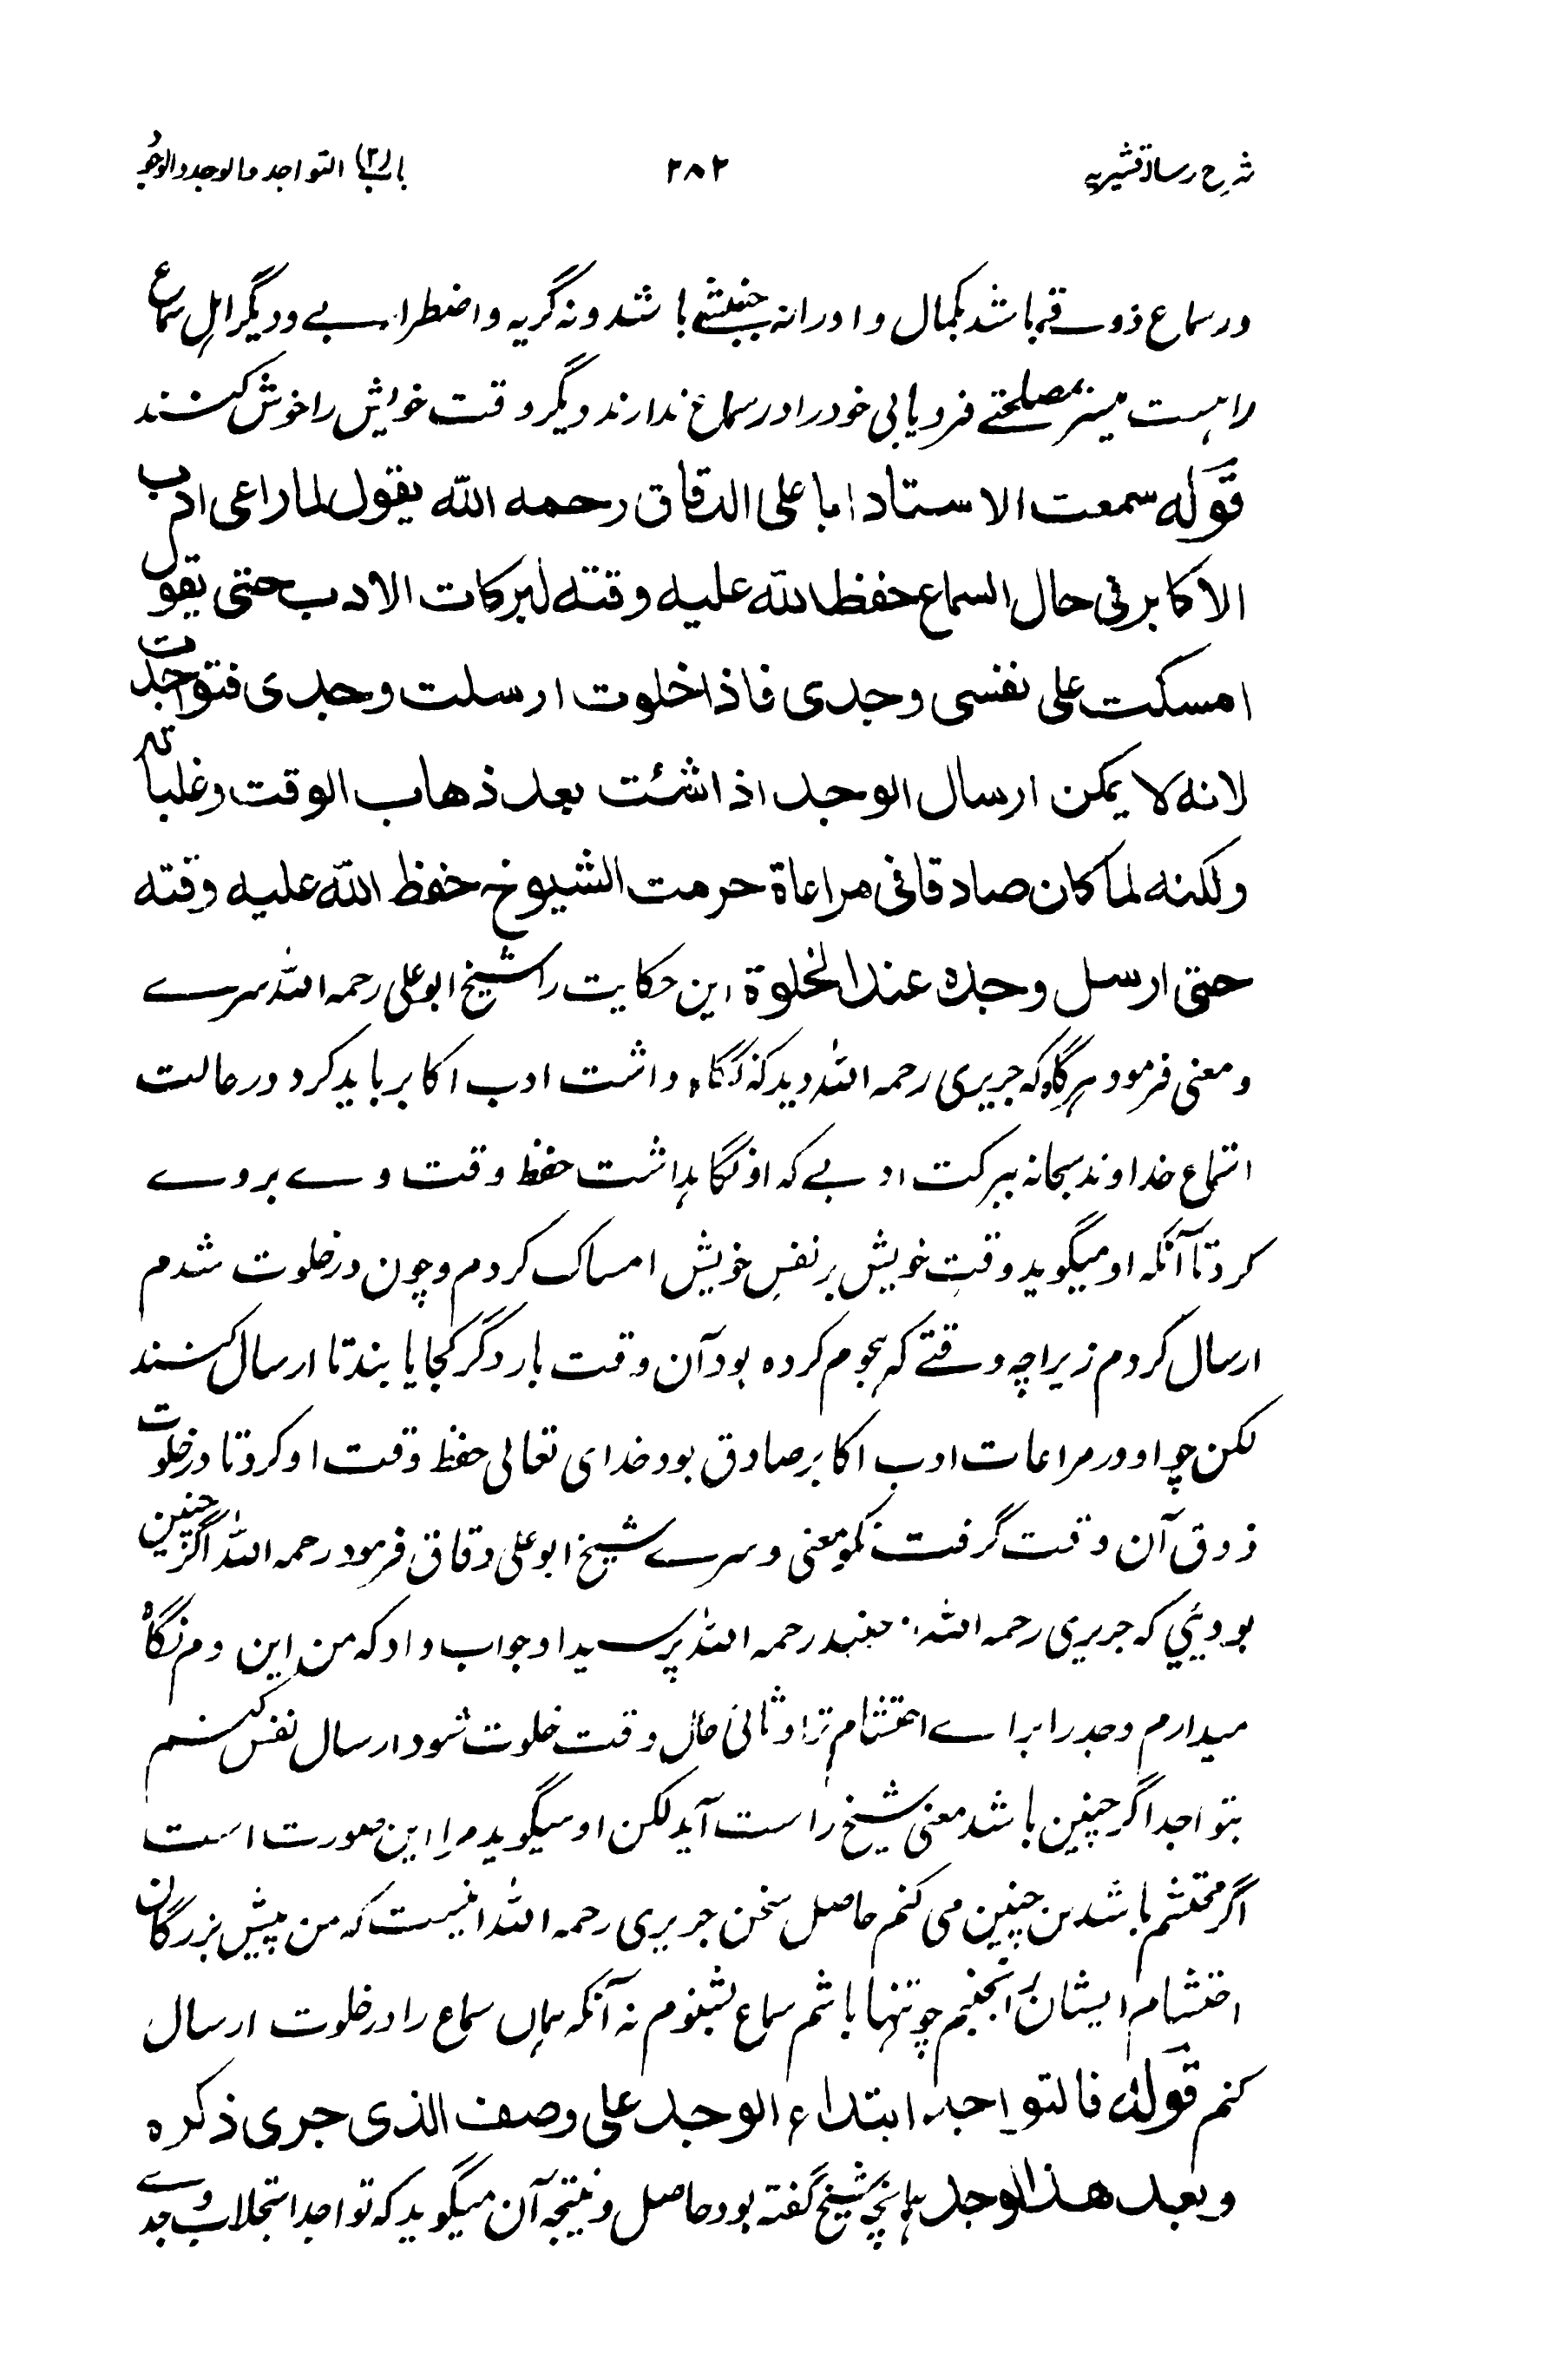 شرح رسالۂ قشیریہ ۲۸۲ باب (۳) التواجد والوجد والوجود
در سماع ذوقے باشد بکمال و او را نہ جنبشے باشد و نہ گریہ و اضطرابے و دیگر اہل سماع
را ہست میسر بمصلحتے فرو یابی خود را در سماع ندارند دیگر وقت خویش را خوش کنند
قولہ سمعت الاستاد ابا علی الدقاق رحمه الله یقول لما راعی ادب
الاکابر فی حال السماع حفظ الله علیه وقته لبرکات الادب حتی یقول
امسکت علی نفسی وجدی فاذا خلوت ارسلت وجدی فتواجدت
لانه لا یمکن ارسال الوجد اذا شئت بعد ذهاب الوقت وغلباته
ولکنه لما کان صادقا فی مراعاة حرمت الشیوخ حفظ الله علیه وقته
حتی ارسل وجده عند الخلوة این حکایت را شیخ ابو علی رحمه الله سرے
و معنی فرمود ہرگاہ کہ جریری رحمہ اللہ دید کہ نگاہ داشت ادب اکابر باید کرد در حالت
استماع خداوند سبحانہ ببرکت ادبے کہ او نگاہداشت حفظ وقت وے بر وے
کرد تا آنکہ او میگوید وقت خویش بر نفس خویش امساک کردم و چون در خلوت شدم
ارسال کردم زیراچہ وقتے کہ ہجوم کردہ بود آن وقت بار دگر کجا یابند تا ارسال کنند
لکن چو او در مراعات ادب اکابر صادق بود خدای تعالی حفظ وقت او کرد تا در خلوت
ذوق آن وقت گرفت نکو معنی و سرے شیخ ابو علی دقاق فرمود رحمہ اللہ اگر چنین
بودیی کہ جریری رحمہ اللہ جنید رحمہ اللہ پرسید او جواب داد کہ من این دم نگاہ
میدارم وجد را براے احتشام ترا و ثانی حال وقت خلوت شود ارسال نفس کنم
بتواجد اگر چنین باشد معنی شیخ راست آید لکن او میگوید مرا این صورت است
اگر محتشم باشد من چنین می کنم حاصل سخن جریری رحمہ اللہ اینست کہ من پیش بزرگان
احتشام ایشان را نجنبم چو تنہا باشم سماع بشنوم نہ آنکہ ہمان سماع را در خلوت ارسال
کنم قولہ فالتواجد ابتداء الوجد علی وصف الذی جری ذکره
وبعد هذا الوجد ہمانچہ شیخ گفتہ بود حاصل و نتیجہ آن میگوید کہ تواجد استجلاب وجدے